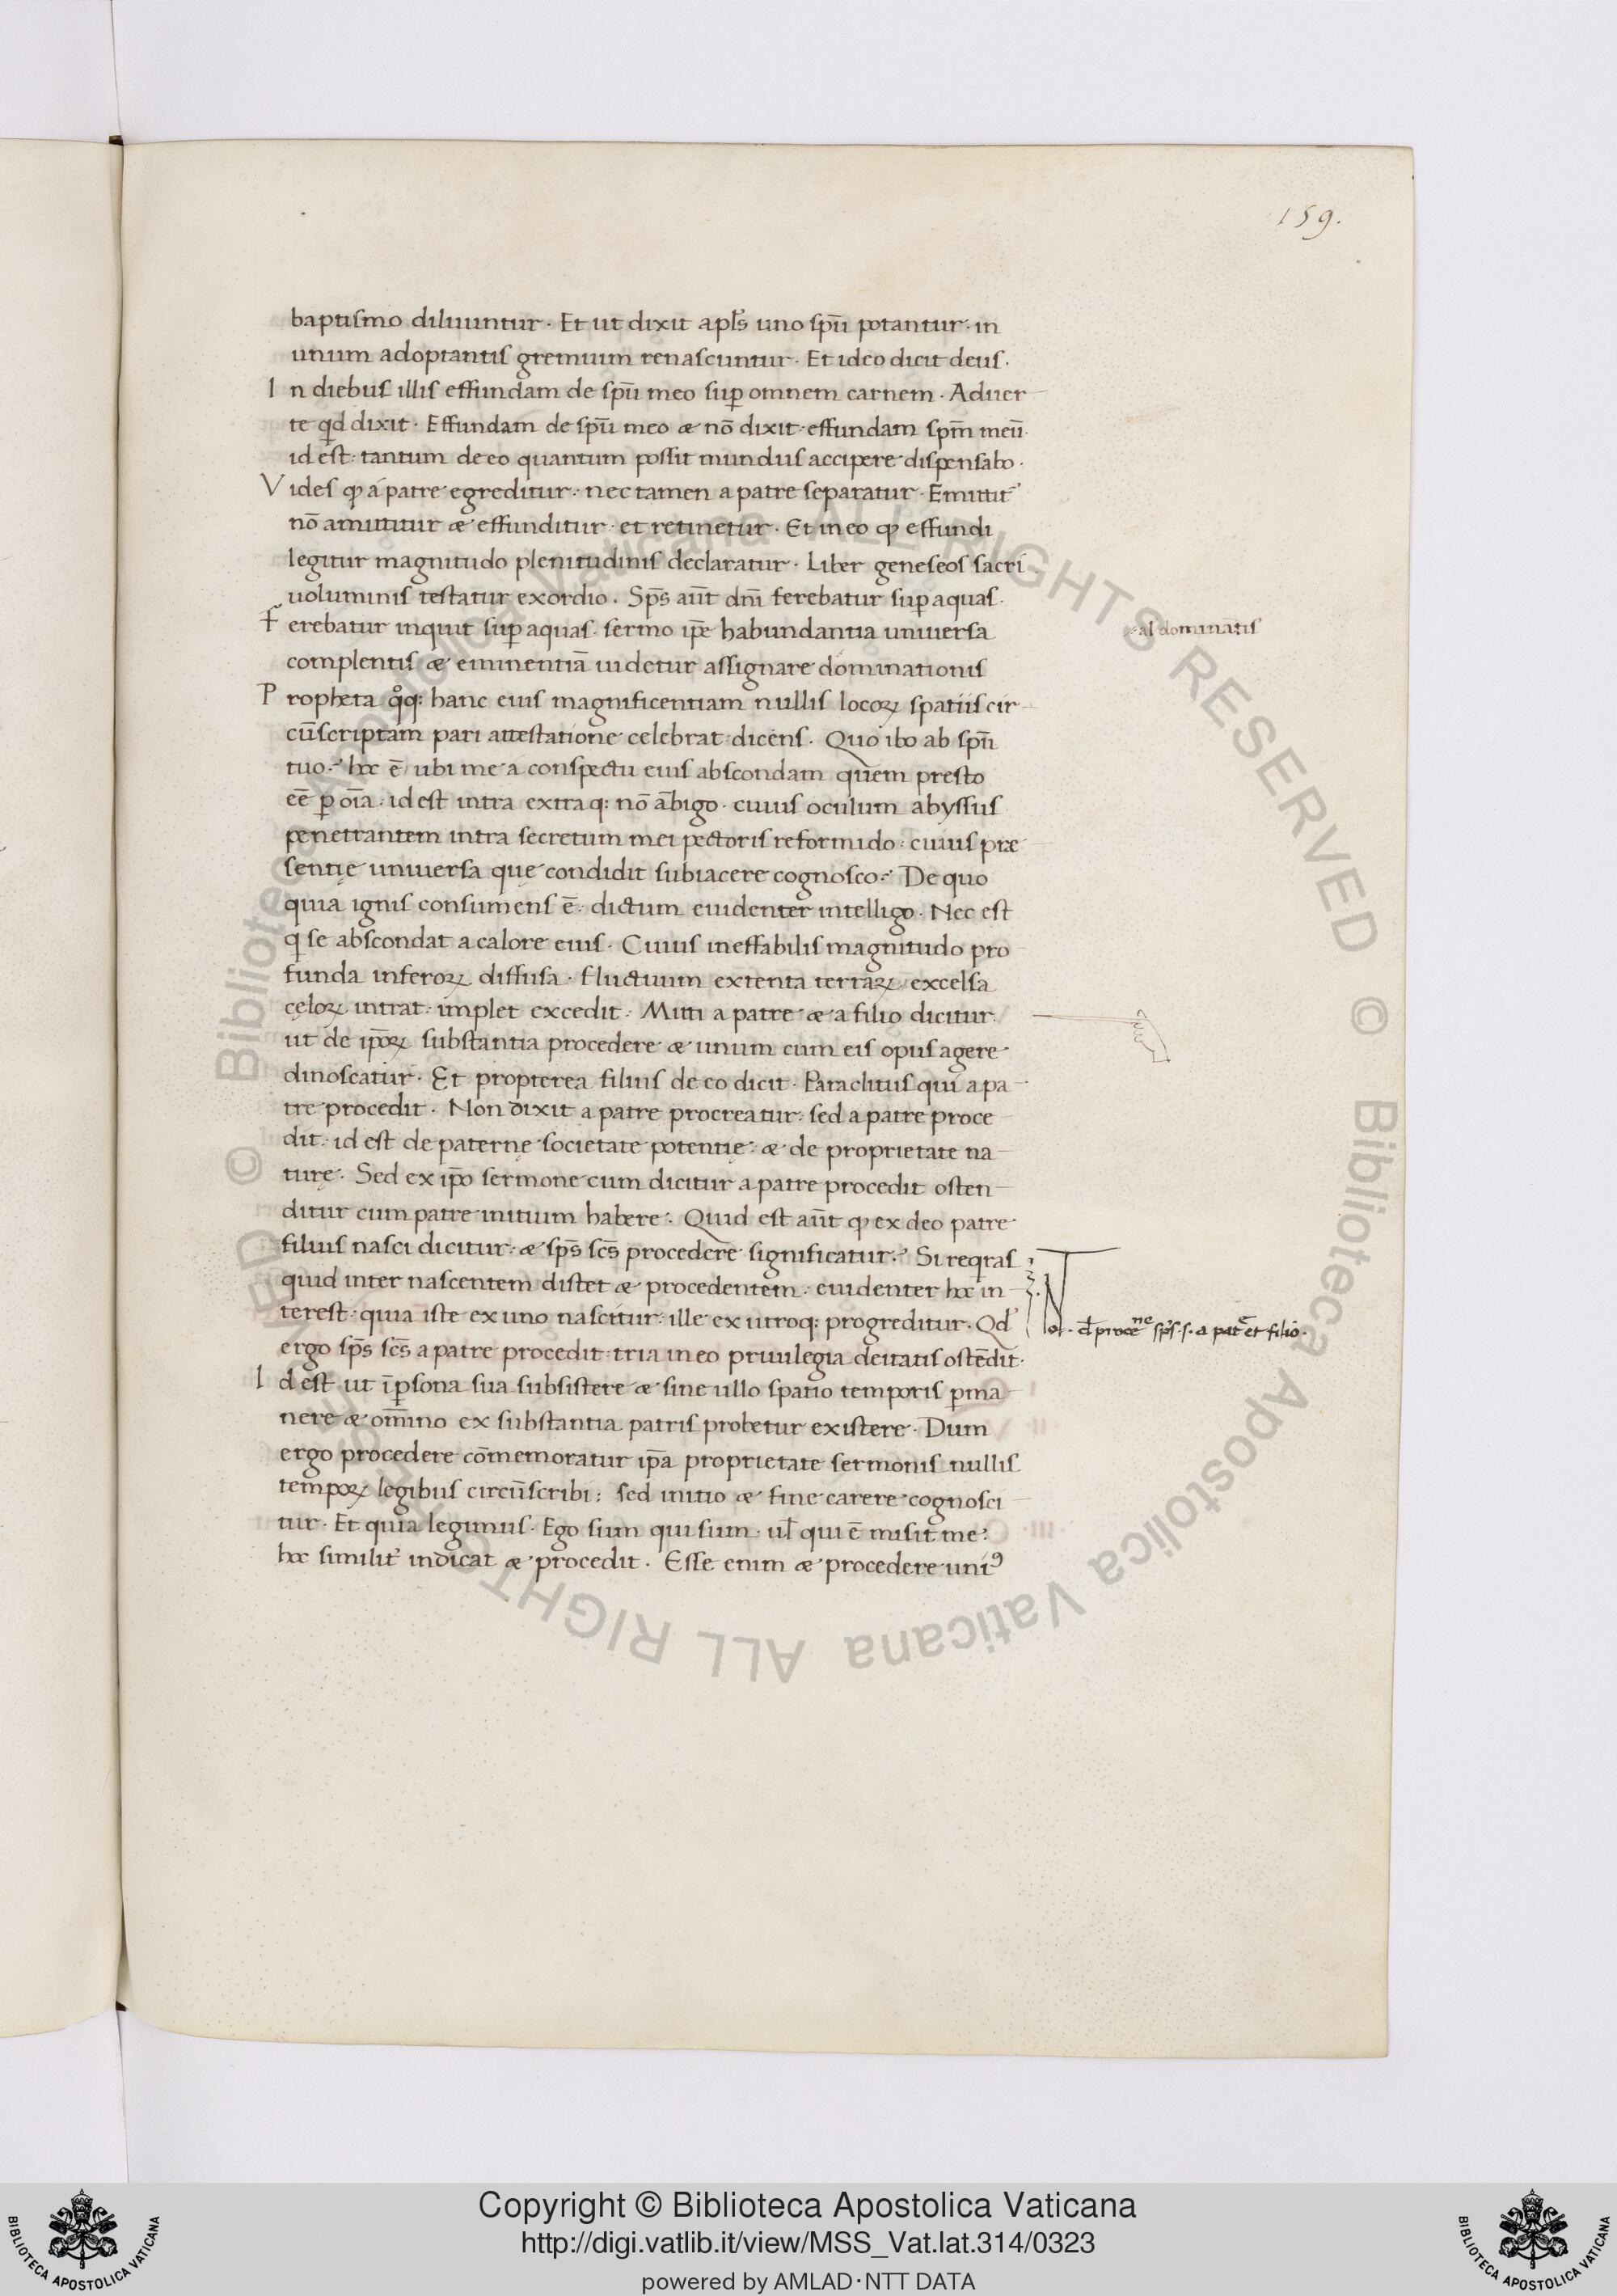 159.
baptismo diluuntur. Et ut dixit apl̄s uno sp̄u potantur. in
unum adoptantis gremium renascuntur. Et ideo dicit deus.
In diebus illis effundam de sp̄u meo sup̱ omnem carnem. Aduer
te qd dixit. Effundam de sp̄u meo & nō dixit. effundam sp̄m meū.
id est: tantum de eo quantum possit mundus accipere dispensabo.
Vides ꝙ a patre egreditur: nec tamen a patre separatur. Emittit᷑
nō amittitur & effunditur. et retinetur. Et in eo ꝙ effundi
legitur magnitudo plenitudinis declaratur. Liber geneseos sacri
uoluminis testatur exordio. Sp̄s aūt dn̄i ferebatur suꝑ aquas.
Ferebatur inquit suꝑ aquas. sermo ip̄e habundantia uniuersa
al dominātis
complentis & eminentiā uidetur assignare dominationis
Propheta qͦq: hanc eius magnificentiam nullis locoꝝ spatiis cir
cūscriptam pari attestatione celebrat: dicens. Quo ibo ab sp̄u
tuo. hoc ē ubi me a conspectu eius abscondam quem presto
eē ꝑ oīa. id est intra extraq: nō ābigo. cuius oculum abyssus
penetrantem intra secretum mei pectoris reformido: cuius præ
sentię uniuersa quę condidit subiacere cognosco. De quo
quia ignis consumens ē. dictum euidenter intelligo. Nec est
q se abscondat a calore eius. Cuius ineffabilis magnitudo pro
funda inferoꝝ diffusa. fluctuum extenta terraꝝ excelsa
cęloꝝ intrat. implet excedit. Mitti a patre & a filio dicitur.
ut de ip̄oꝝ substantia procedere & unum cum eis opus agere
dinoscatur. Et propterea filius de eo dicit. Paraclitus qui a pa
tre procedit. Non dixit a patre procreatur: sed a patre proce
dit. id est de paternę societate potentię: & de proprietate na
turę. Sed ex ip̄o sermone cum dicitur a patre procedit osten
ditur cum patre initium habere. Quid est aūt ꝙ ex deo patre
filius nasci dicitur: & sp̄s sc̄s procedere significatur. Si reqras
quid inter nascentem distet & procedentem: euidenter hoc in
terest. quia iste ex uno nascitur. ille ex utroq: progreditur. Qd᷑
Nota. d̄ proceⁿᵉ sp̄s. s. a patre et filio.
ergo sp̄s sc̄s a patre procedit. tria in eo priuilegia deitatis ostēdit.
Id est ut ī ꝑsona sua subsistere & sine ullo spatio temporis ꝑma
nere & om̄ino ex substantia patris probetur existere. Dum
ergo procedere cōmemoratur ip̄a proprietate sermonis nullis
tempoꝝ legibus circūscribi: sed initio & fine carere cognosci
tur. Et quia legimus. Ego sum qui sum. ul̄ qui ē misit me:
hoc similit᷑ indicat & procedit. Esse enim & procedere uniꝰ
Copyright © Biblioteca Apostolica Vaticana
http://digi.vatlib.it/view/MSS_Vat.lat.314/0323
powered by AMLAD·NTT DATA
BIBLIOTECA APOSTOLICA VATICANA
BIBLIOTECA APOSTOLICA VATICANA
© Biblioteca Apostolica Vaticana ALL RIGHTS RESERVED © Biblioteca Apostolica Vaticana ALL RIGHTS RESERVED